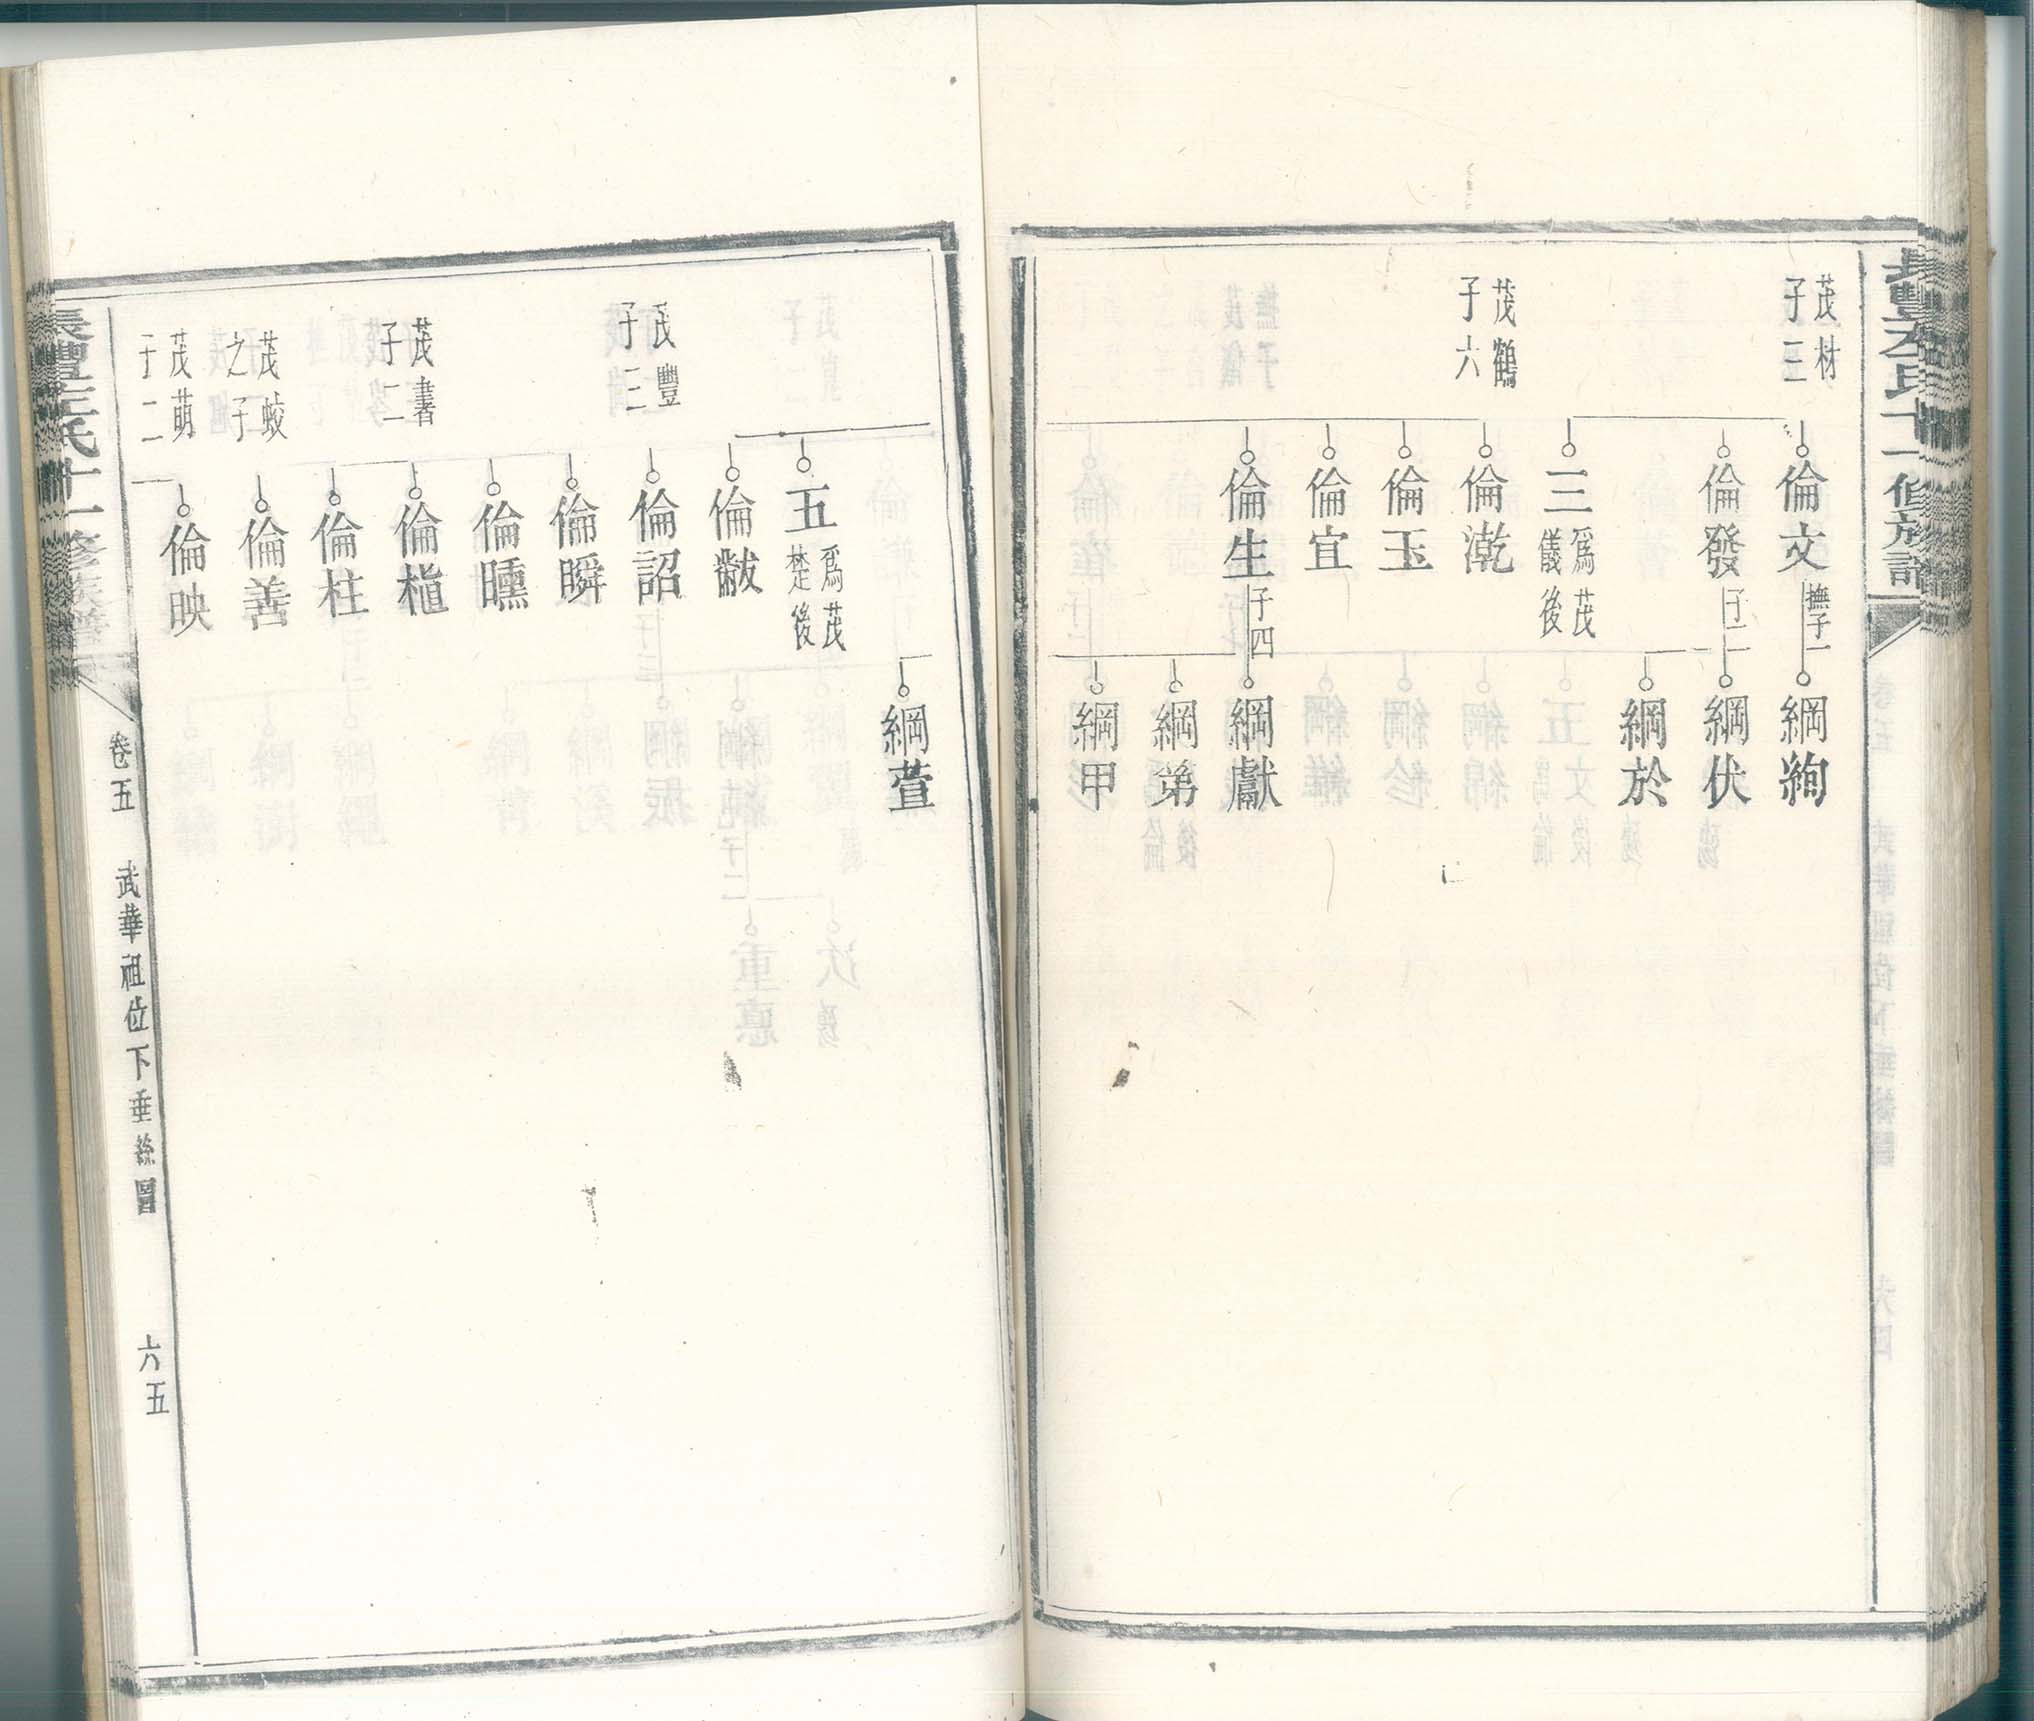 茂材
子三
倫文
撫子一
綱絢
倫發
子二
綱伏
綱於
三
為茂
儀後
茂鶴
子六
倫漧
倫玉
倫宜
倫生
子四
綱獻
綱弟
綱甲
綱萱
五
為茂
楚後
倫黻
茂豐
子三
倫詔
倫瞬
倫曛
茂書
子二
倫植
倫柱
茂蛟
之子
倫善
茂萌
子二
倫映
長豐左氏十一修族譜
卷五
武華祖位下垂絲圖
六五